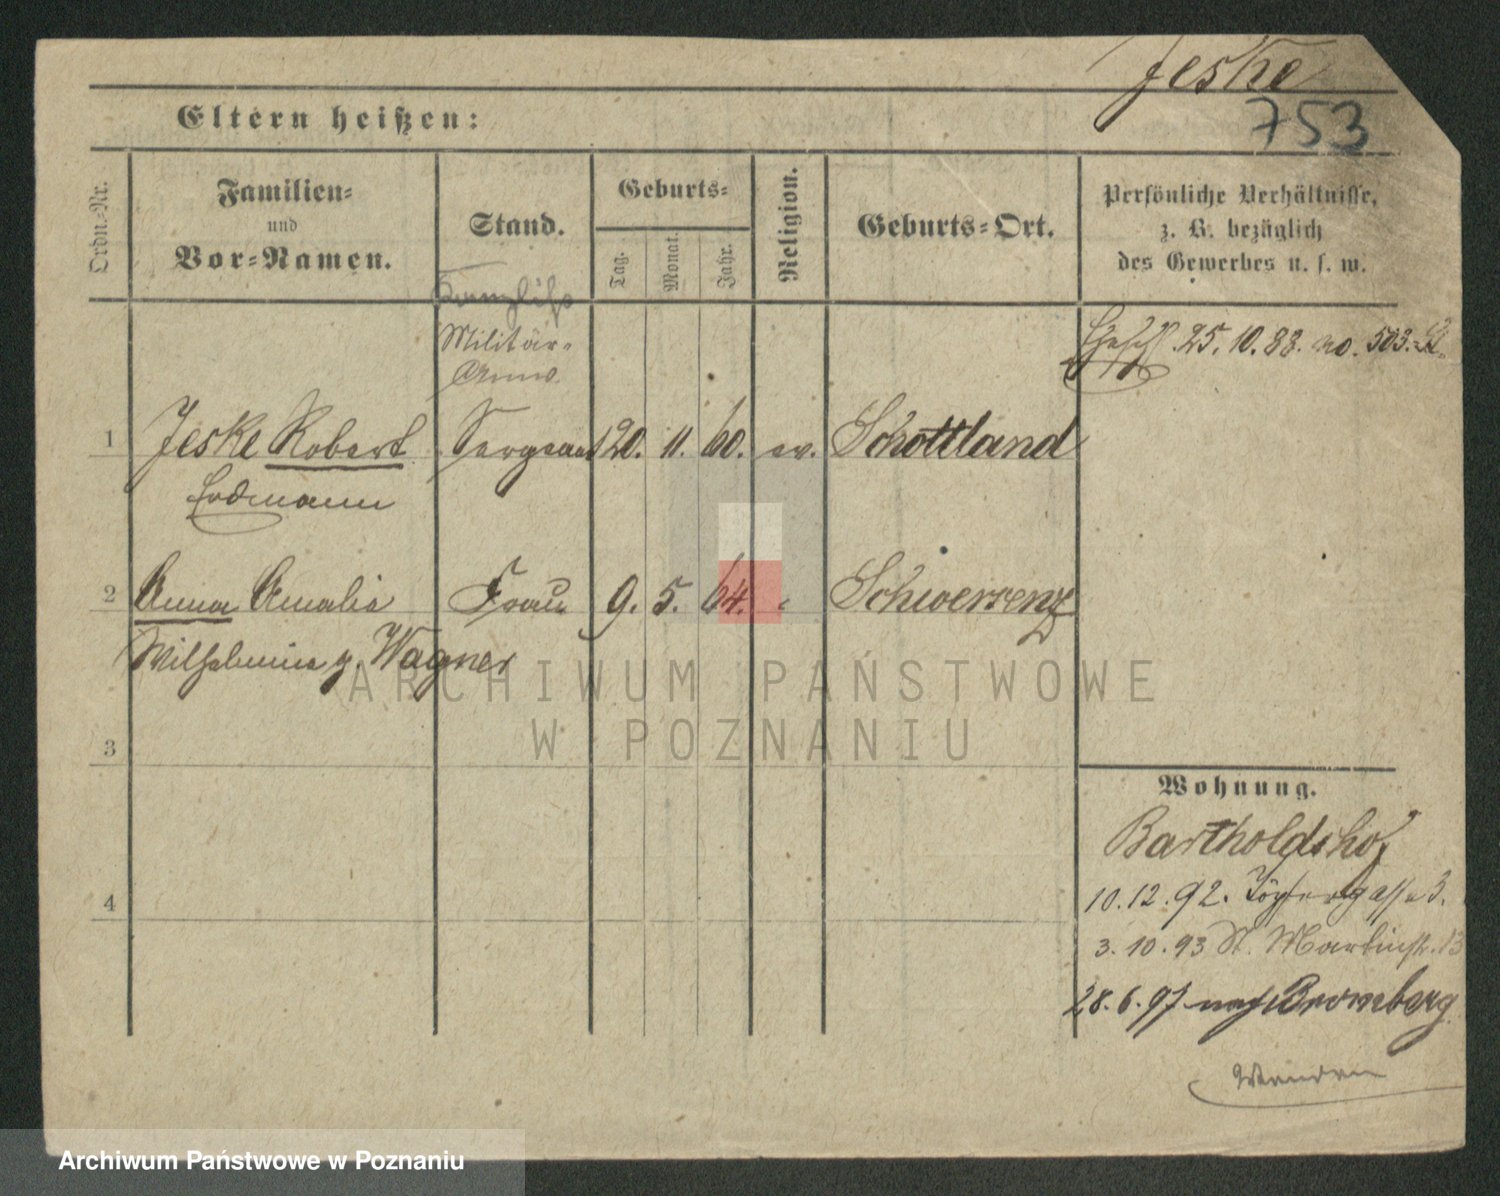 Jeske
753
Eltern heißen:
Ordn.-Nr.
Familien-
und
Vor-Namen.
Stand.
Geburts-
Tag.
Monat.
Jahr.
Religion.
Geburts-Ort.
Persönliche Verhältnisse,
z. B. bezüglich
des Gewerbes u. s. w.
Militär-
Anw.
25. 10. 88. no. 503.
1 Jeske Robert Sergeant 20. 11. 60. ev. Schottland
Erdmann
2 Anna Amalie Frau 9. 5. 64. " Schwersenz
Wilhelmine g. Wagner
3
4
Wohnung.
Bartholdshof
10.12.92. Töpfergasse 3.
3.10.93 St. Martinstr. 13
28.6.97 nach Bromberg
Wenden
ARCHIWUM PAŃSTWOWE
W POZNANIU
Archiwum Państwowe w Poznaniu